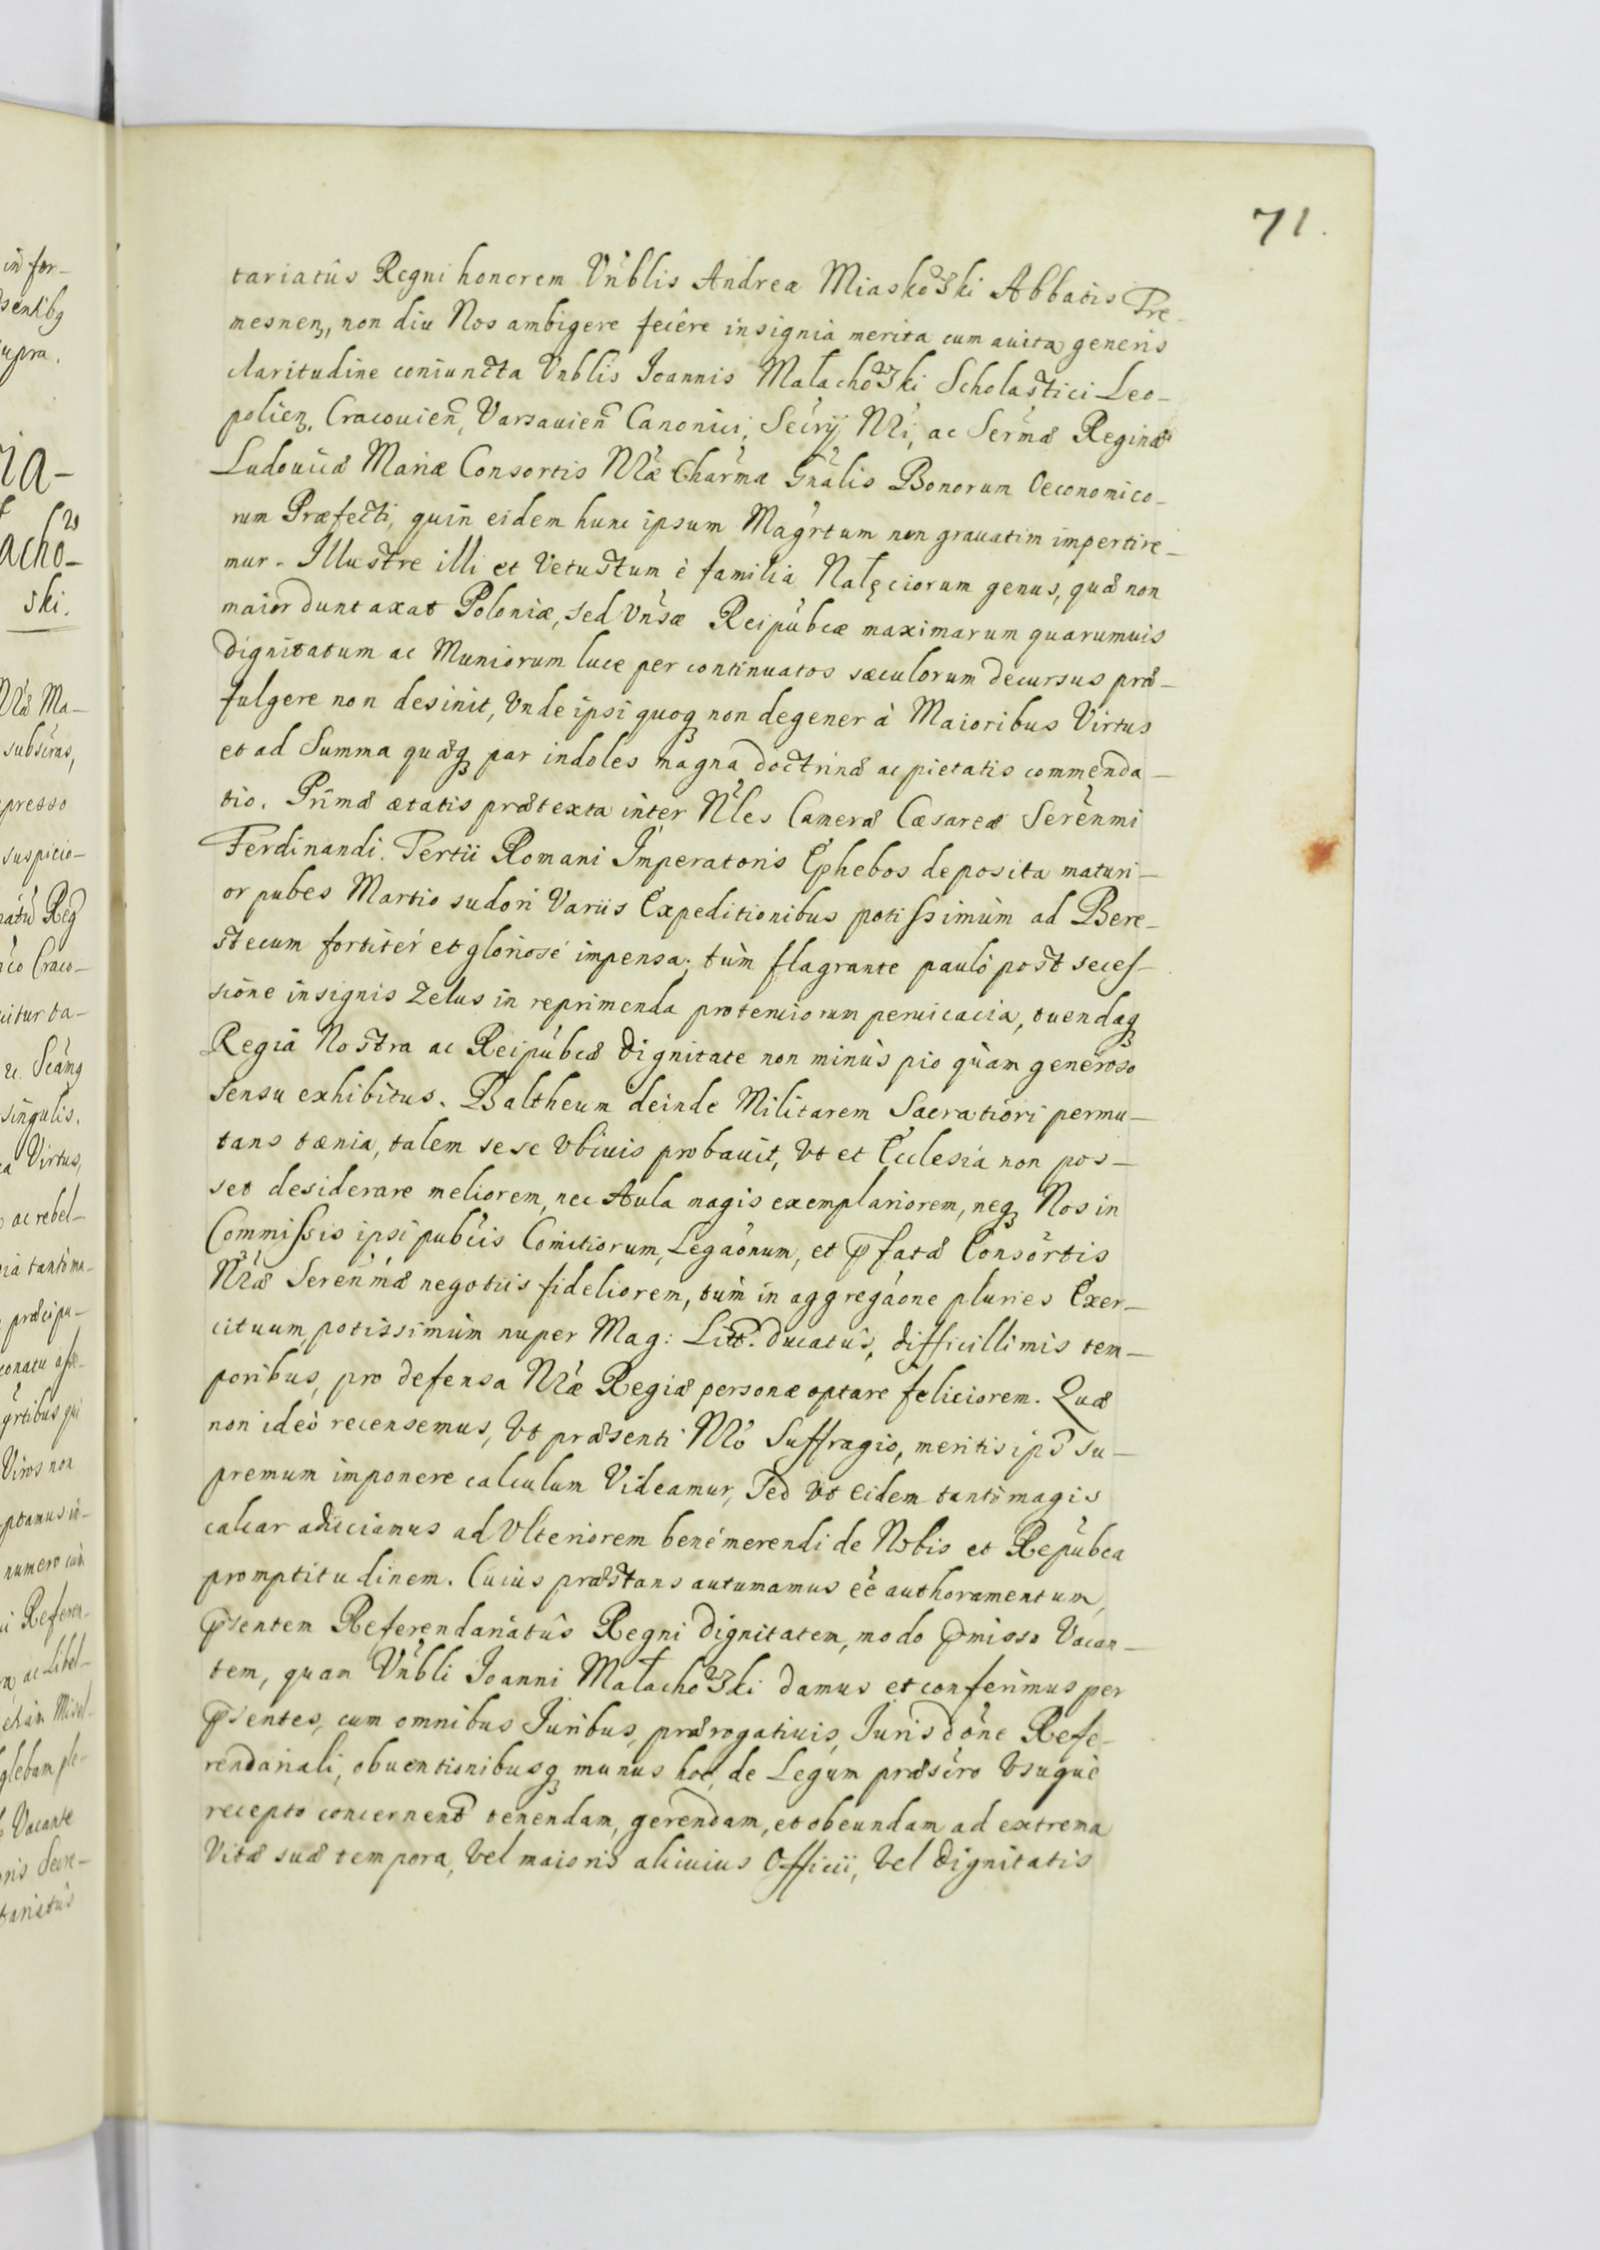 71.
tariatûs Regni honorem Vn̄blis Andreæ Miaskowski Abbatis Tre-
mesnen, non diu Nos ambigere fecêre insignia merita cum auita generis
claritudine coniuncta Vnblis Ioannis Małachowski Scholastici Leo-
polien. Cracouien, Varsauien Canonici, Secrij Nri, ac Sermæ Reginæ
Ludouicæ Mariæ Consortis Nræ Charmæ Gnalis Bonorum Oeconomico-
rum Præfecti, quin eidem hunc ipsum Magrtum non grauatim impertire-
mur. Illustre illi et Vetustum è familia Nałęciorum genus, quæ non
maior duntaxat Poloniæ, sed Vnsæ Reipubcæ maximarum quarumuis
dignitatum ac Muniorum luce per continuatos sæculorum decursus præ-
fulgere non desinit, Vnde ipsi quoq non degener à Maioribus Virtus
et ad Summa quæq par indoles magna doctrinæ ac pietatis commenda-
tio. Primæ ætatis prætexta inter Nles Cameræ Cæsareæ Serenmi
Ferdinandi Tertii Romani Imperatoris Ephebos deposita maturi-
or pubes Martio sudori Variis Expeditionibus potissimùm ad Bere-
stecum fortitér et gloriosé impensa; tùm flagrante pauló post seces-
sione insignis Zelus in reprimenda proteruiorum peruicacia, tuendaq
Regiâ Nostra ac Reipubcæ dignitate non minùs pio quàm generoso
sensu exhibitus. Baltheum deinde Militarem Sacratiori permu-
tans tænia, talem sese Vbiuis probauit, Vt et Ecclesia non pos-
set desiderare meliorem, nec Aula magis exemplariorem, neq Nos in
Commissis ipsi pubcis Comitiorum, Legaonum, et pfatæ Consortis
Nræ Serenmæ negotiis fideliorem, tùm in aggregaone pluries Exer-
cituum, potissimùm nuper Mag: Litt. ducatûs, difficillimis tem-
poribus, pro defensa Nræ Regiæ personæ optare feliciorem. Quæ
non ideò recensemus, Vt præsenti Nro Suffragio, meritis ips su-
premum imponere calculum Videamur, Sed Vt eidem tantò magis
calcar adiiciamus ad Vlteriorem benémerendi de Nobis et Repubca
promptitudinem. Cuius præstans autumamus ee authoramentum,
psentem Referendariatûs Regni dignitatem, modo pmisso Vacan-
tem, quam Vnbli Ioanni Małachowski damus et conferimus per
psentes, cum omnibus Iuribus, prærogatiuis, Iurisdone Refe-
rendariali, obuentionibusq munus hoc, de Legum præscro Vsuquè
recepto concernent tenendam, gerendam, et obeundam ad extrema
Vitæ suæ tempora, Vel maioris alicuius Officii, Vel dignitatis